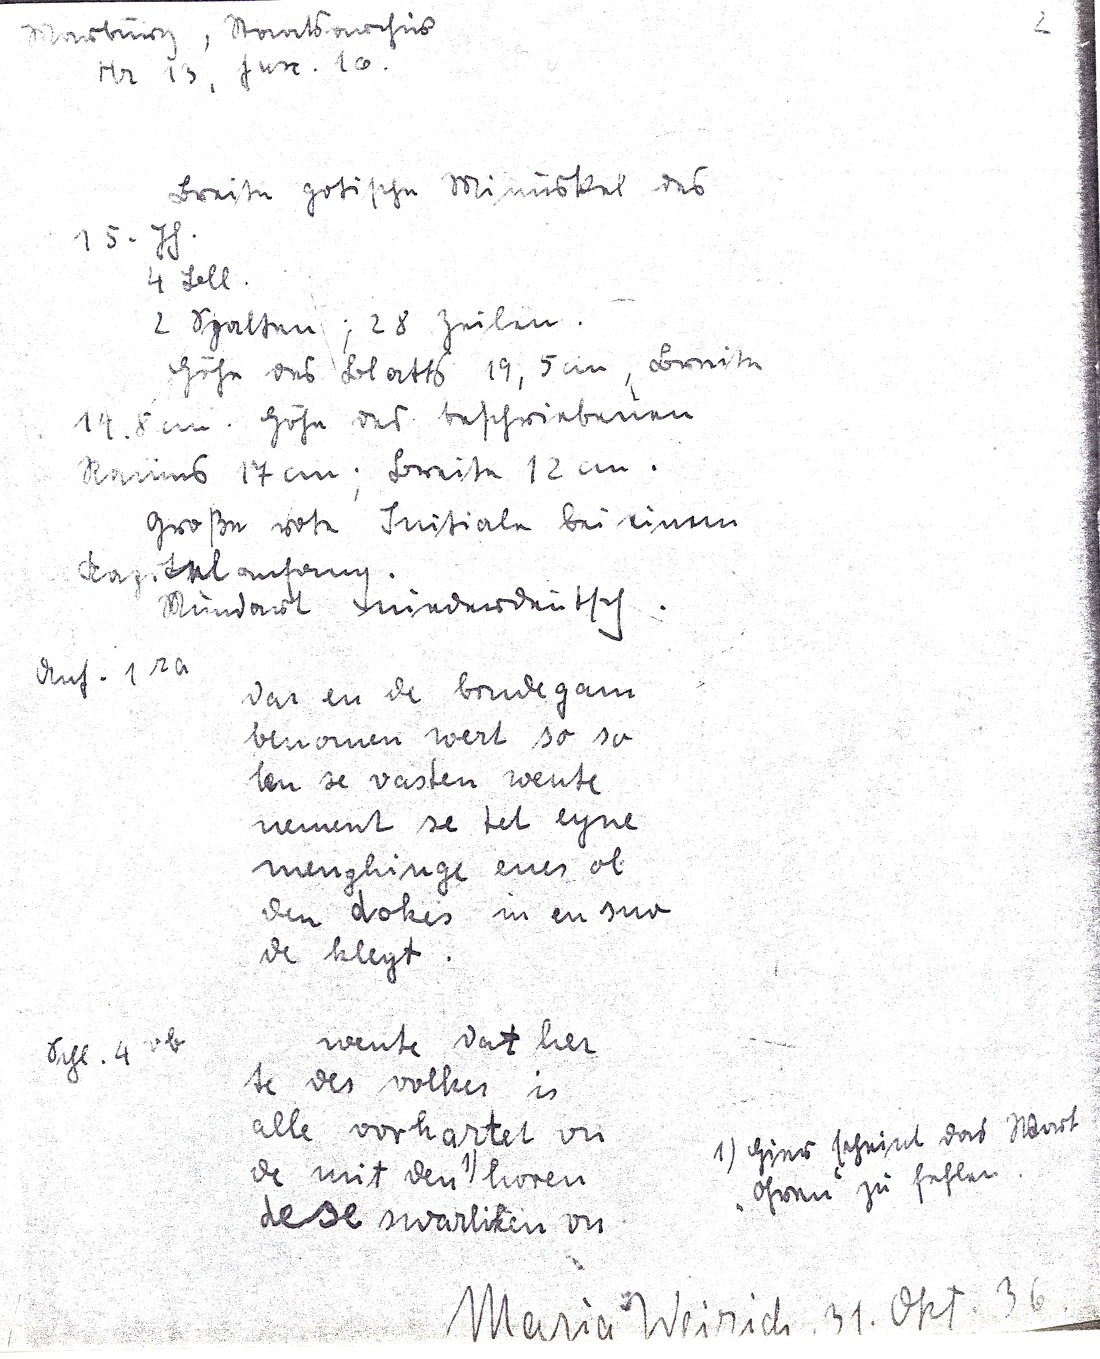 2
Marburg, Staatsarchiv
Nr 13, Fasc. 10.
Breite gotische Minuskel des
15. Jh.
4 Bll.
2 Spalten; 28 Zeilen.
Höhe des Blatts 19,5 cm, Breite
14.8 cm. Höhe des beschriebenen
Raums 17 cm; Breite 12 cm.
Große rote Initiale bei einem
Kapitelanfang.
Mundart niederdeutsch.
Anf. 1 ra
dar en de brudegam
benomen wert so so
len se vasten wente
nement se tel eyne
menghinge enes ol
den dokes in en snv
de kleyt.
Schl. 4 vb
wente dat her
te des volkes is
alle vorhartet vn
de mit den 1) horen
dese swarliken vn
1) Hier scheint das Wort
„Ohren“ zu fehlen.
Maria Weirich. 31. Okt. 36.